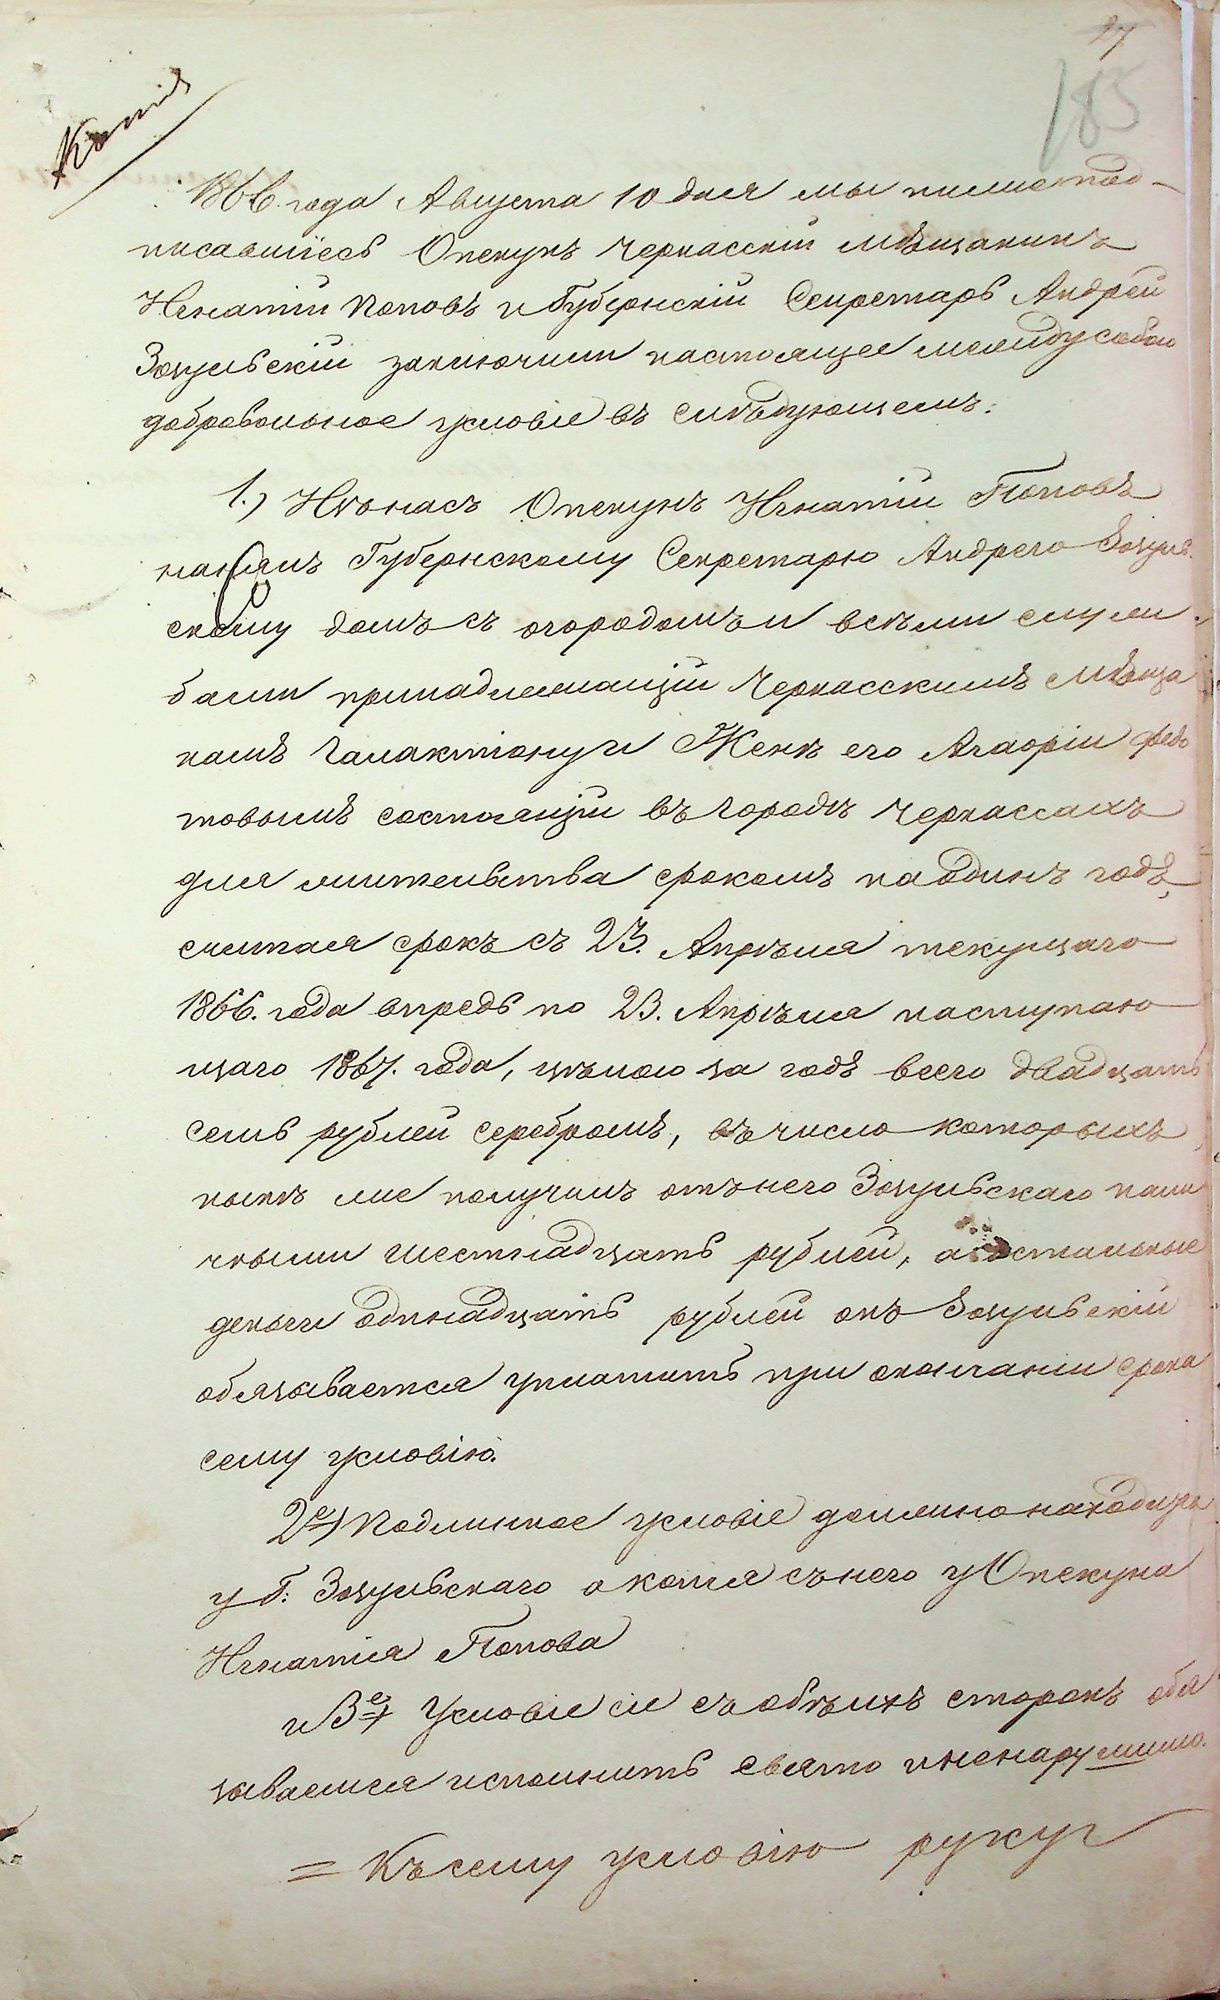 27
185
Копія
1866 года Августа 10 дня мы нижепод-
писавшіесь Опекунъ Черкасскій мѣщанинъ
Игнатій Поповъ и Губернскій Секретарь Андрей
Зозульскій заключили настоящее межиду собою
добровольное условіе въ слѣдующемъ:
1.) Изъ насъ Опекунъ Игнатій Поповъ
нанялъ Губернскому Секретарю Андрею Зозуль
скому домъ съ огородомъ и всѣми служ
бами принадлежащій Черкасскимъ мѣща
намъ Галактіону и Женѣ его Агафіи Федо
товымъ состоящій въ городѣ Черкассахъ
для жительства срокомъ на одинъ годъ,
считая срокъ съ 23. Апрѣля текущаго
1866. года впредь по 23. Апрѣля наступаю
щаго 1867. года, цѣною за годъ всего двадцать
семь рублей серебромъ, въ число которыхъ
нынѣ же получилъ отъ него Зозульскаго нали
чными шестнадцать рублей, а остальные
деньги одинадцать рублей онъ Зозульскій
обязывается уплатить при окончаніи срока
сему условію.
2е) Подлинное условіе должно находица
у Г. Зозульскаго а копія съ него у Опекуна
Игнатія Попова
и 3е) Условіе сіе съ обѣихъ сторонъ обя
зываемся исполнить свято и ненарушимо.
= Къ сему условію руку